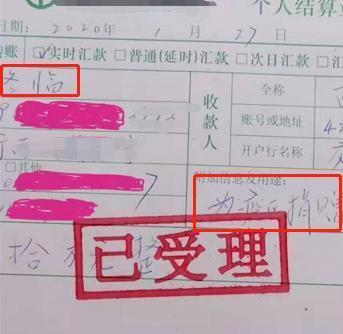 个人结算
日期: 2020年1月27日
转账 ☑实时汇款 □普通(延时)汇款 □次日汇款
冬临
收款人
全称
账号或地址
开户行名称
□其他
附加信息及用途:
为疫区捐赠
拾万元整
已受理